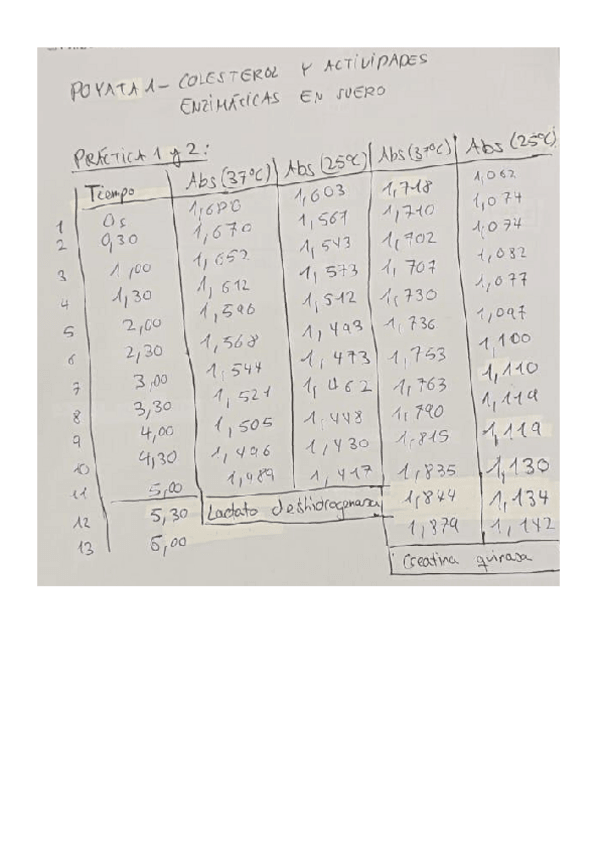 POYATA 1- COLESTEROL Y ACTIVIDADES
ENZIMÁTICAS EN SUERO
PRÁCTICA 1 y 2:
Tiempo Abs (37ºC) Abs (25ºC) Abs (37ºC) Abs (25ºC)
1 0s 1,603 1,718 1,062
2 0,30 1,670 1,561 1,710 1,074
3 1,00 1,652 1,543 1,702 1,074
4 1,30 1,612 1,573 1,707 1,082
5 2,00 1,596 1,512 1,730 1,077
6 2,30 1,568 1,493 1,736 1,097
7 3,00 1,544 1,473 1,753 1,100
8 3,30 1,521 1,462 1,763 1,110
9 4,00 1,505 1,448 1,790 1,119
10 4,30 1,496 1,430 1,815 1,119
11 5,00 1,489 1,417 1,835 1,130
12 5,30 Lactato deshidrogenasa 1,844 1,134
13 6,00 1,879 1,142
Creatina quinasa